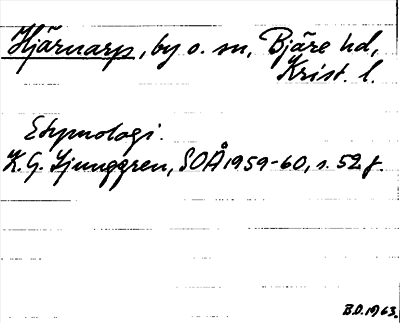 Hjärnarp, by o. sn, Bjäre hd,
Krist. l.
Etymologi.
K.G. Ljunggren, SOÅ 1959-60, s. 52 f.
B.D. 1963.